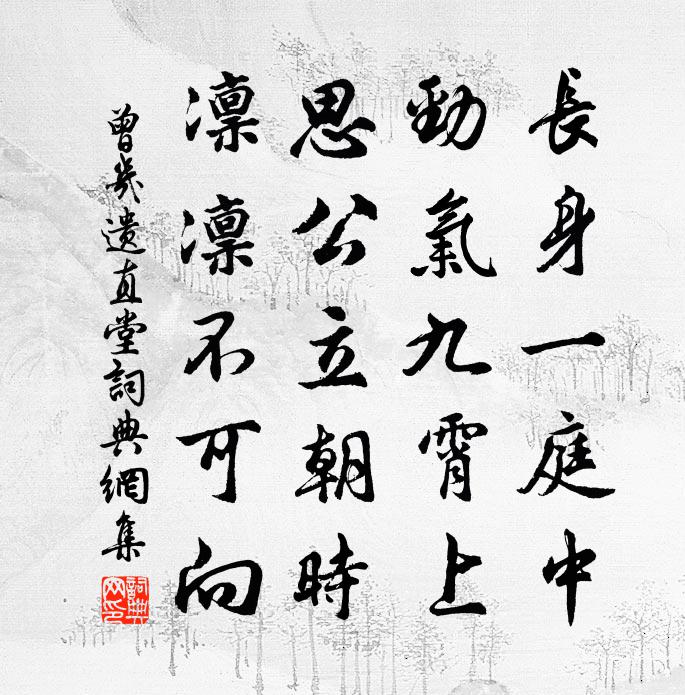 長身一庭中
勁氣九霄上
思公立朝時
凛凛不可向
曾幾遺直堂詞典網集